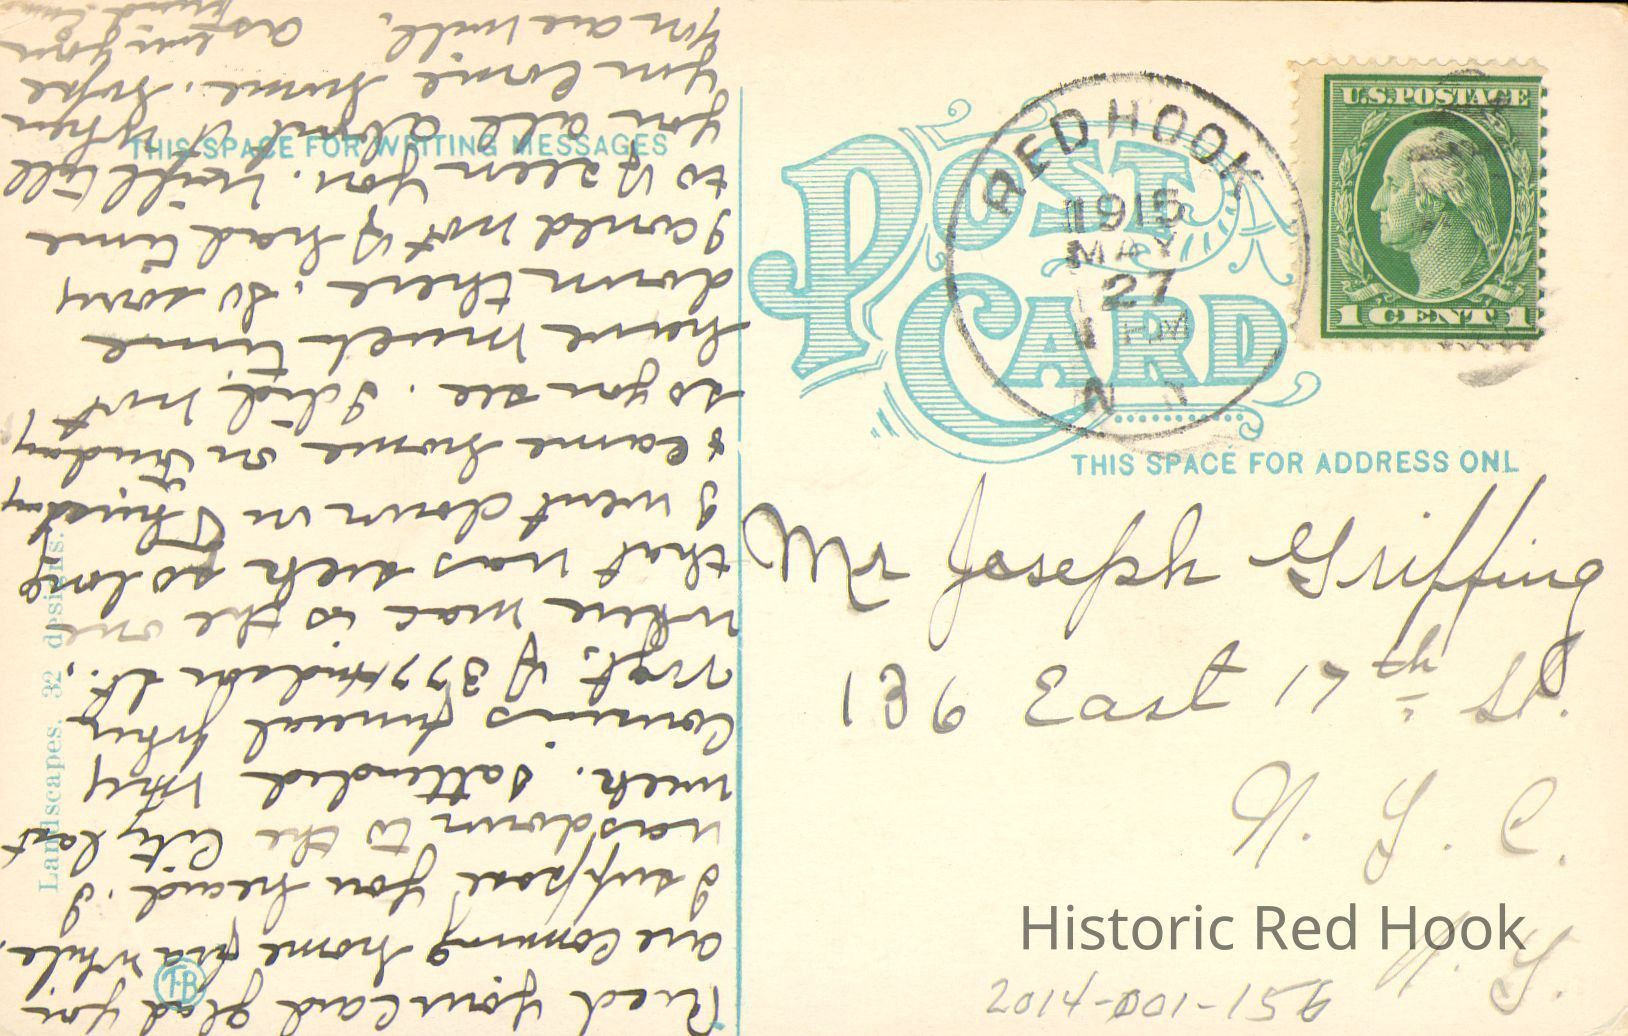 Rec'd your card glad you
are coming home for a while.
I suppose you heard I
was down to the City last
week. I attended my
Cousins funeral Why
right of 377 Hudson St.,
where mac is the one
that was sick so long
I went down on Thursday
& came home on Sunday
so you see I did not
have much time
down there, so sorry
I could not of had time
to of seen you. Will tell
you all about it when
you come home. Hope
you are well, as
THIS SPACE FOR WRITING MESSAGES
Landscapes. 32 designs.
T.B
POST CARD
RED HOOK
1915
MAY
27
N Y
U.S. POSTAGE
1 CENT 1
THIS SPACE FOR ADDRESS ONL
Mr Joseph Griffing
136 East 17th St.
N. Y. C.
N. Y.
Historic Red Hook
2014-001-151